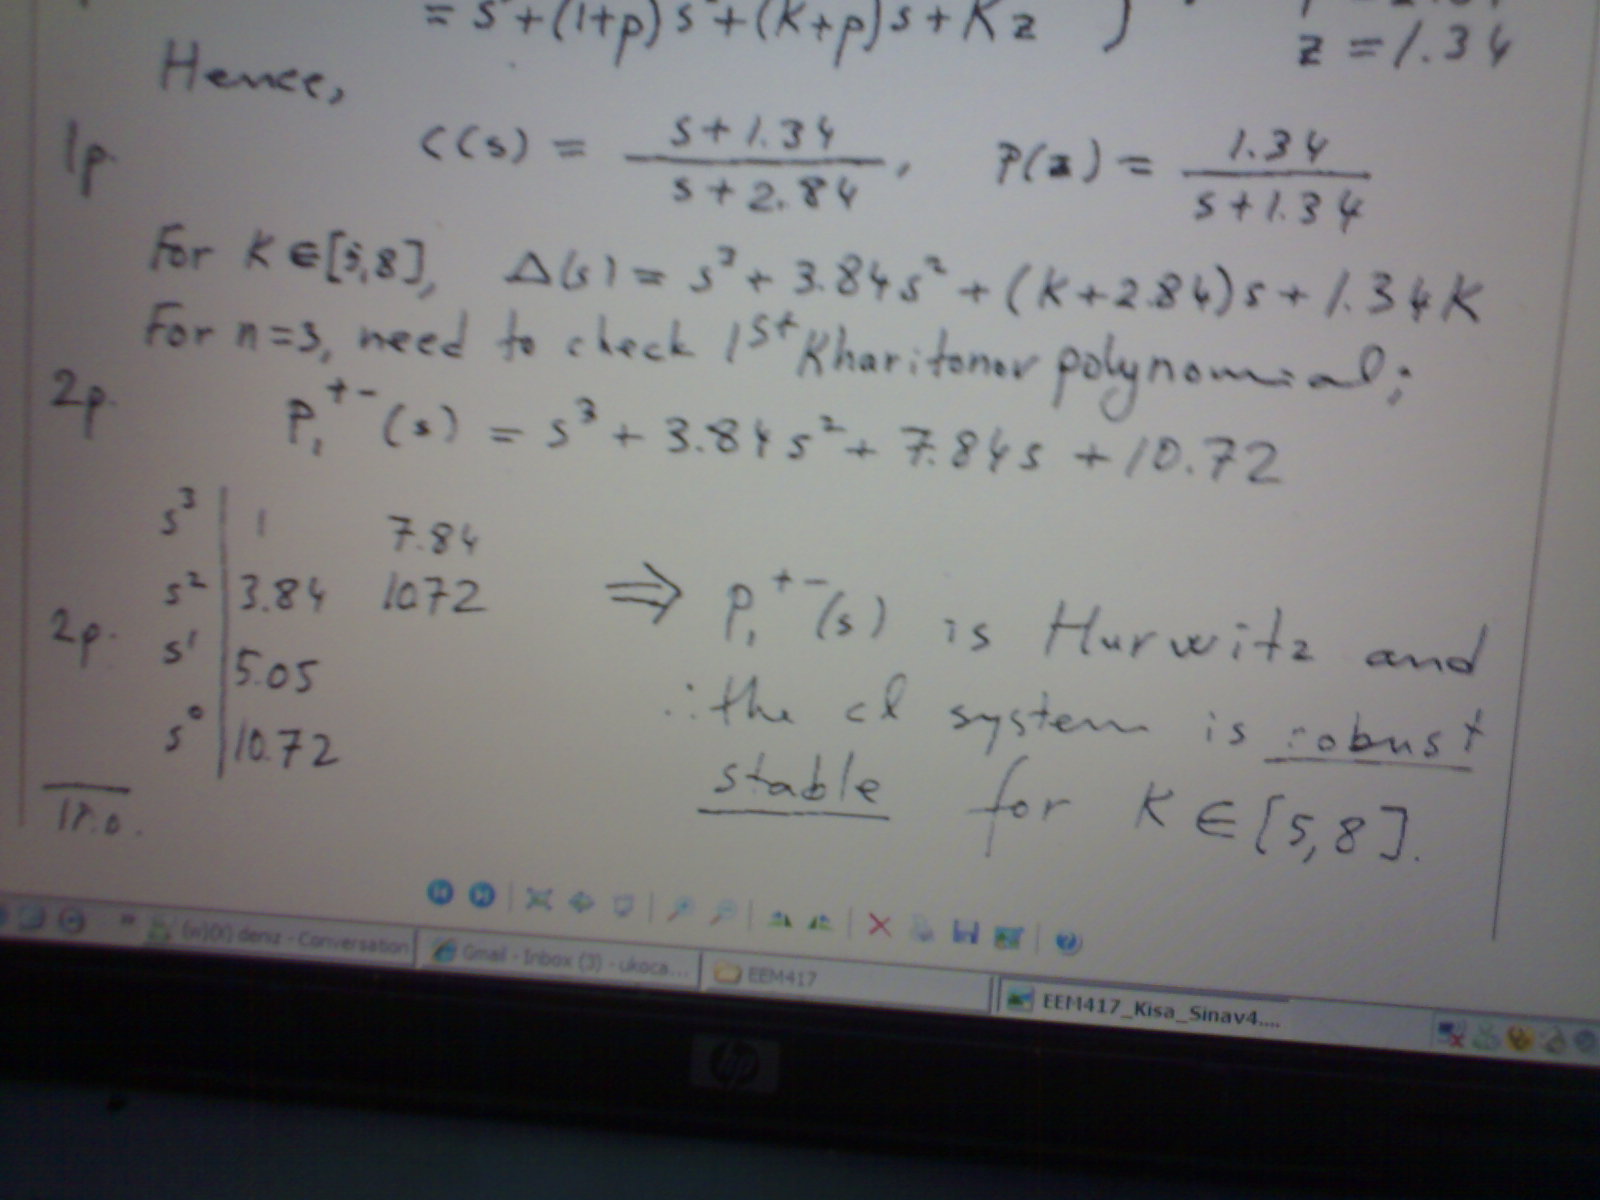 = s + (1+p) s + (K+p) s + K z )
z = 1.34
Hence,
1p.
C(s) = s + 1.34 / s + 2.84 , P(z) = 1.34 / s + 1.34
For K ∈ [5,8], Δ(s) = s³ + 3.84 s² + (K + 2.84) s + 1.34 K
For n=3, need to check 1st Kharitonov polynomial;
2p. P₁⁺⁻(s) = s³ + 3.84 s² + 7.84 s + 10.72
s³ | 1 7.84
s² | 3.84 10.72 ⇒ P₁⁺⁻(s) is Hurwitz and
2p. s¹ | 5.05 ∴ the cl system is robust
s⁰ | 10.72 stable for K ∈ [5,8].
(w)(X) deniz - Conversation
Gmail - Inbox (3) - ukoca...
EEM417
EEM417_Kisa_Sinav4....
hp